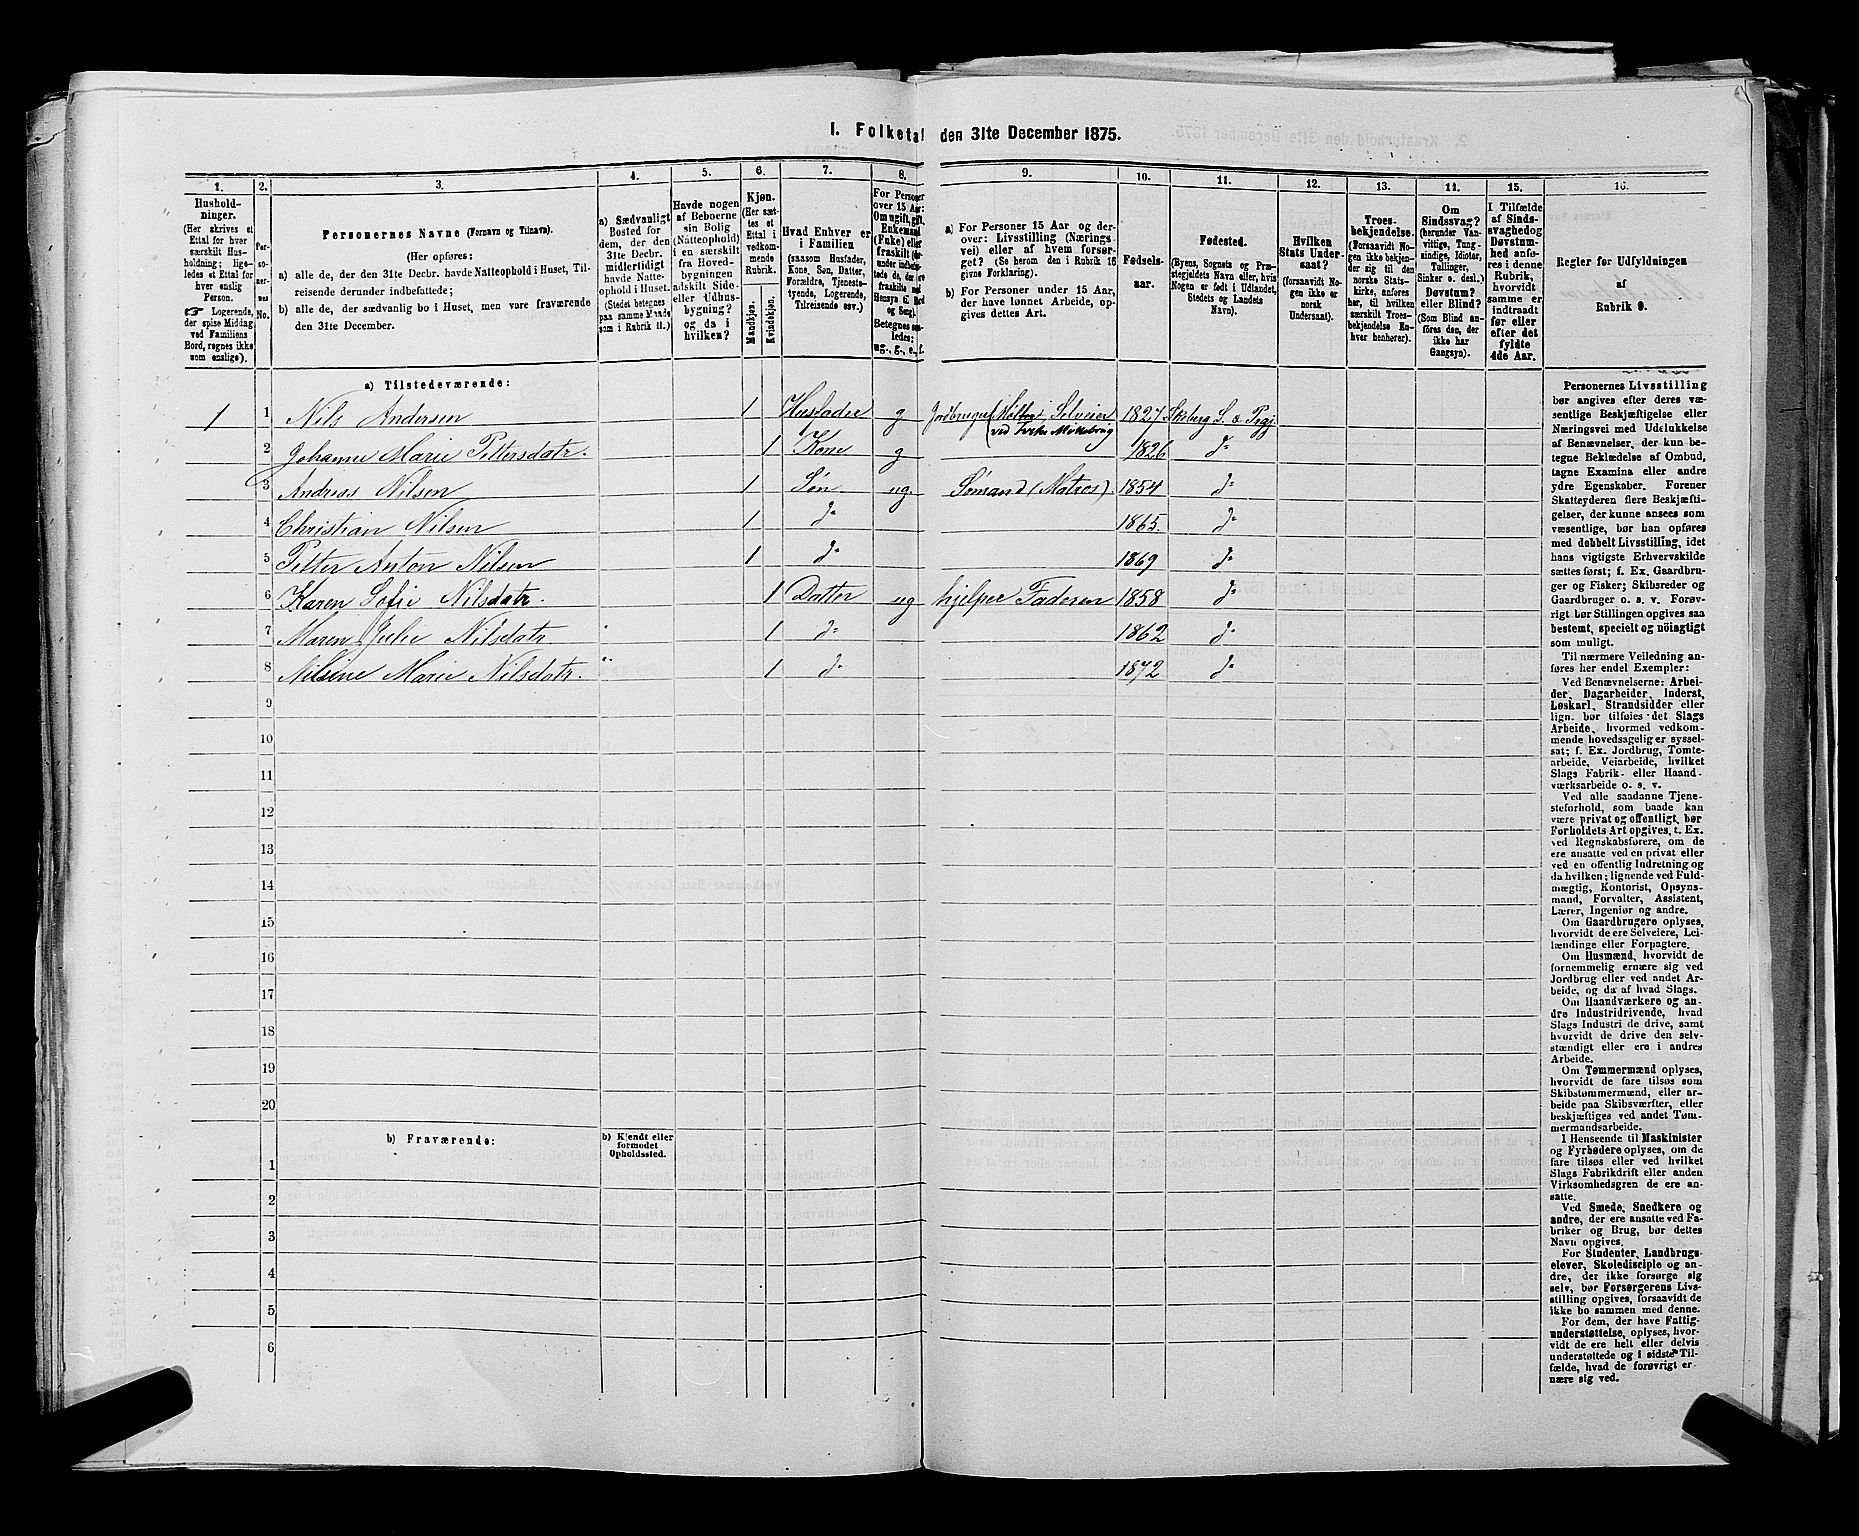 I. Folketal den 31te December 1875.
1. 2. 3. 4. 5. 6. 7. 8. 9. 10. 11. 12. 13. 14. 15. 16.
Hushold-
ninger.
(Her skrives et
Ettal for hver
særskilt Hus-
holdning; lige-
ledes et Ettal for
hver enslig
Person.
☞ Logerende,
der spise Middag
ved Familiens
Bord, regnes ikke
som enslige).
Per-
so-
ner-
nes
No.
Personernes Navne (Fornavn og Tilnavn).
(Her opføres:
a) alle de, der den 31te Decbr. havde Natteophold i Huset, Til-
reisende derunder indbefattede;
b) alle de, der sædvanlig bo i Huset, men vare fraværende
den 31te December.
a) Sædvanligt
Bosted for
dem, der den
31te Decbr.
midlertidigt
havde Natte-
ophold i Huset.
(Stedet betegnes
paa samme Maade
som i Rubrik 11.)
Havde nogen
af Beboerne
sin Bolig
(Natteophold)
i en særskilt
fra Hoved-
bygningen
adskilt Side-
eller Udhus-
bygning?
og da i
hvilken?
Kjøn.
(Her sæt-
tes et
Ettal i
vedkom-
mende
Rubrik.
Mandkjøn.
Kvindekjøn.
Hvad Enhver er
i Familien
(saasom Husfader,
Kone, Søn, Datter,
Forældre, Tjeneste-
tyende, Logerende,
Tilreisende osv.)
For Personer
over 15 Aar:
Om ugift, gift,
Enkemand
(Enke) eller
fraskilt
Betegnes saa-
ledes:
ug., g., e., f.
a) For Personer 15 Aar og der-
over: Livsstilling (Nærings-
vei) eller af hvem forsør-
get? (Se herom den i Rubrik 16
givne Forklaring).
b) For Personer under 15 Aar,
der have lønnet Arbeide, op-
gives dettes Art.
Fødsels-
aar.
Fødested.
(Byens, Sognets og Præ-
stegjeldets Navn eller, hvis
Nogen er født i Udlandet,
Stedets og Landets
Navn).
Hvilken
Stats Under-
saat?
(forsaavidt No-
gen ikke er
norsk
Undersaat).
Troes-
bekjendelse.
(Forsaavidt No-
gen ikke bekjen-
der sig til den
norske Stats-
kirke, anføres
her, til hvilken
særskilt Troes-
bekjendelse En-
hver henhører).
Om
Sindssvag?
(herunder Van-
vittige, Tung-
sindige, Idioter,
Tullinger,
Sinker o. desl.)
Døvstum?
eller Blind?
(Som Blind an-
føres den, der
ikke har
Gangsyn).
I Tilfælde
af Sinds-
svaghed og
Døvstum-
hed anfø-
res i denne
Rubrik,
hvorvidt
samme er
indtraadt
før eller
efter det
fyldte
4de Aar.
Regler for Udfyldningen
af
Rubrik 9.
a) Tilstedeværende:
1 1 Nils Andersen 1 Husfader g Jordbruger (Møller Selveier 1827 Skeberg S. & Prgj.
2 Johanne Marie Pettersdatr. 1 Kone g 1826 do
3 Andreas Nilsen 1 Søn ug. Sømand (Matros). 1854 do
4 Christian Nilsen 1 do 1865. do
5 Petter Anton Nilsen 1 do 1869 do
6 Karen Sofie Nilsdatr. 1 Datter ug hjelper Faderen 1858 do
7 Maren Julie Nilsdatr 1 do 1862 do
8 Nilsine Marie Nilsdatr. 1 do 1872 do
9
10
11
12
13
14
15
16
17
18
19
20
b) Fraværende:
b) Kjendt eller
formodet
Opholdssted.
1
2
3
4
5
6
Personernes Livsstilling
bør angives efter deres væ-
sentlige Beskjæftigelse eller
Næringsvei med Udelukkelse
af Benævnelser, der kun be-
tegne Beklædelse af Ombud,
tagne Examina eller andre
ydre Egenskaber. Forener
Skatteyderen flere Beskjæfti-
gelser, der kunne ansees som
væsentlige, bør han opføres
med dobbelt Livsstilling, idet
hans vigtigste Erhvervskilde
sættes først; f. Ex. Gaardbru-
ger og Fisker; Skibsreder og
Gaardbruger o. s. v. Forøv-
rigt bør Stillingen opgives saa
bestemt, specielt og nöiagtigt
som muligt.
Til nærmere Veiledning an-
føres her endel Exempler:
Ved Benævnelserne: Arbei-
der, Dagarbeider, Inderst,
Løskarl, Strandsidder eller
lign. bør tilføies det Slags
Arbeide, hvormed vedkom-
mende hovedsagelig er syssel-
sat; f. Ex. Jordbrug, Tomte-
arbeide, Veiarbeide, hvilket
Slags Fabrik- eller Haand-
værksarbeide o. s. v.
Ved alle saadanne Tjene-
steforhold, som baade kan
være privat og offentligt, bør
Forholdets Art opgives, t. Ex.
ved Regnskabsførere, om de
ere ansatte ved en privat eller
ved en offentlig Indretning og
da hvilken; lignende ved Fuld-
mægtig, Kontorist, Opsyns-
mand, Forvalter, Assistent,
Lærer, Ingeniør og andre.
Om Gaardbrugere oplyses,
hvorvidt de ere Selveiere, Lei-
lændinge eller Forpagtere.
Om Husmænd, hvorvidt de
fornemmelig ernære sig ved
Jordbrug eller ved andet Ar-
beide, og da af hvad Slags.
Om Haandværkere og an-
dre Industridrivende, hvad
Slags Industri de drive, samt
hvorvidt de drive den selv-
stændigt eller ere i andres
Arbeide.
Om Tømmermænd oplyses,
hvorvidt de fare tilsøs som
Skibstømmermænd, eller ar-
beide paa Skibsværfter, eller
beskjæftiges ved andet Tøm-
mermandsarbeide.
I Henseende til Maskinister
og Fyrbødere oplyses, om de
fare tilsøs eller ved hvilket
Slags Fabrikdrift eller anden
Virksomhedsgren de ere an-
satte.
Ved Smede, Snedkere og
andre, der ere ansatte ved Fa-
briker og Brug, bør dettes
Navn opgives.
For Studenter, Landbrugs-
elever, Skoledisciple og an-
dre, der ikke forsørge sig
selv, bør Forsørgerens Livs-
stilling opgives, forsaavidt de
ikke bo sammen med denne.
For dem, der have Fattig-
understøttelse, oplyses, hvor-
vidt de ere helt eller delvis
understøttede og i sidste Til-
fælde, hvad de forøvrigt er-
nære sig ved.